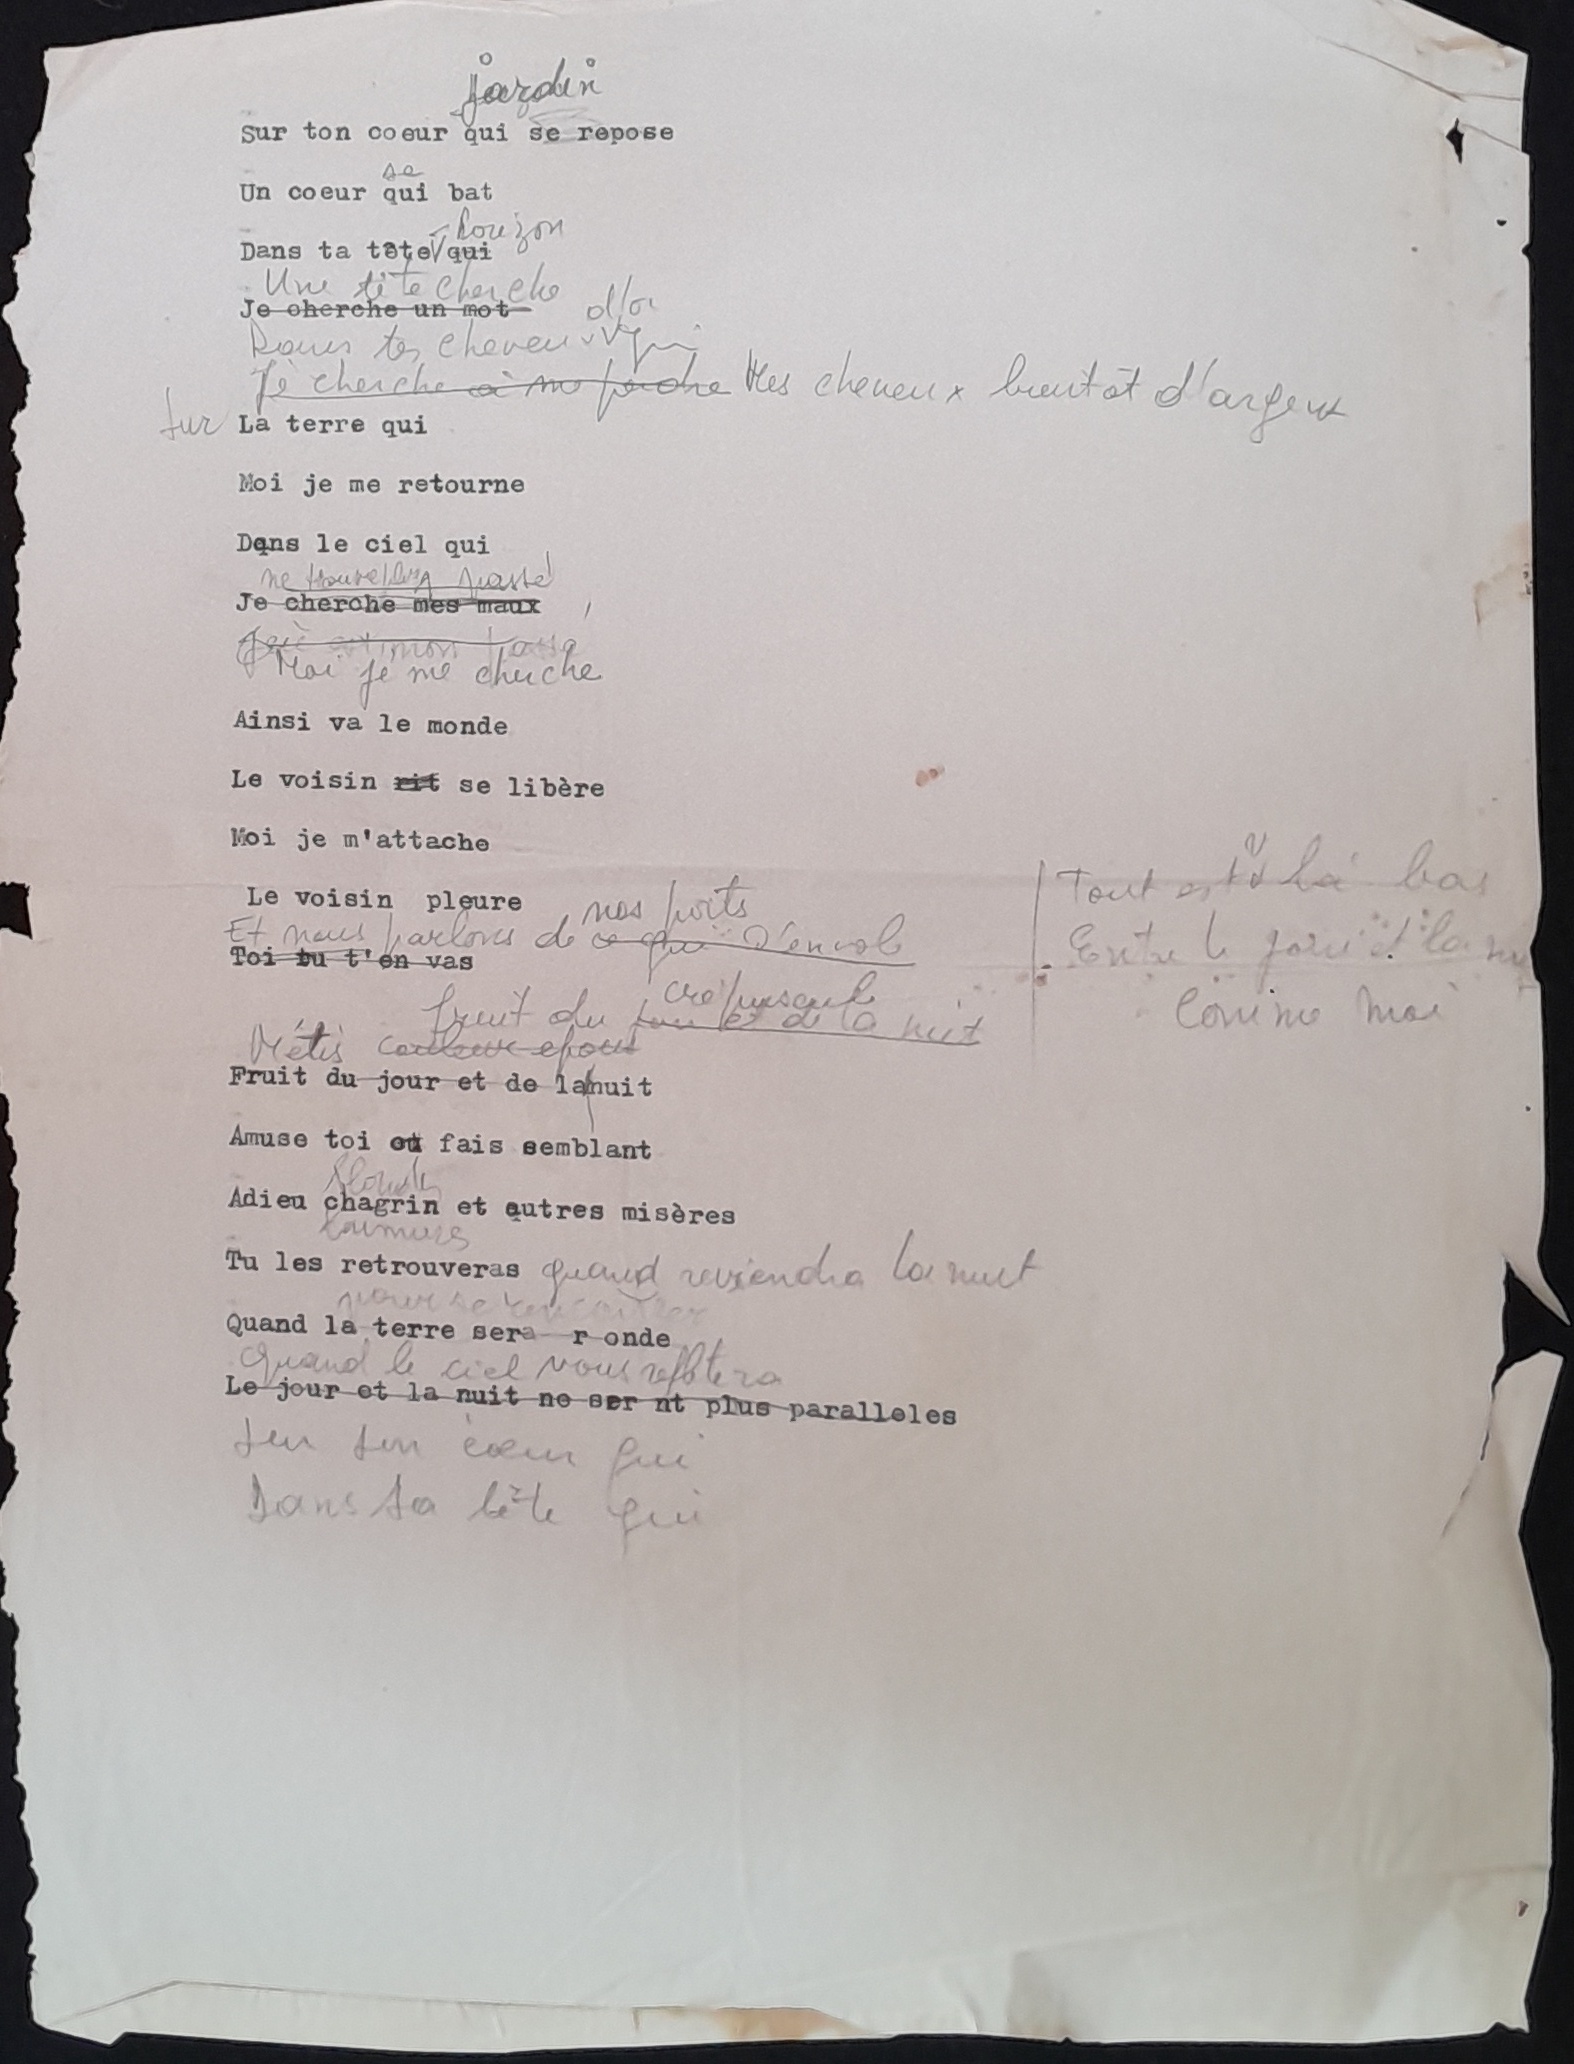 jardin
Sur ton coeur qui se repose
se
Un coeur qui bat
horizon
Dans ta tête qui
Une tête cherche
Je cherche un mot
d'or
Dans tes cheveux qui
Je cherche à me perdre Mes cheveux bientôt d'argent
Sur La terre qui
Moi je me retourne
Dans le ciel qui
ne trouve passé
Je cherche mes maux
mon passé
Moi je me cherche
Ainsi va le monde
Le voisin rit se libère
Moi je m'attache
Le voisin pleure
nos ports
Et nous parlons de ce qui s'envole
Toi tu t'en vas
Tout est là bas
Entre le jour et la nu
Comme moi
crépuscule
fruit du jour et de la nuit
Métis couleur epous
Fruit du jour et de la nuit
Amuse toi ou fais semblant
Adieu chagrin et autres misères
Tu les retrouveras quand reviendra la nuit
pour se rencontrer
Quand la terre sera r onde
Quand le ciel vous reflètera
Le jour et la nuit ne ser nt plus paralleles
Sur ton coeur qui
Dans ta tête qui